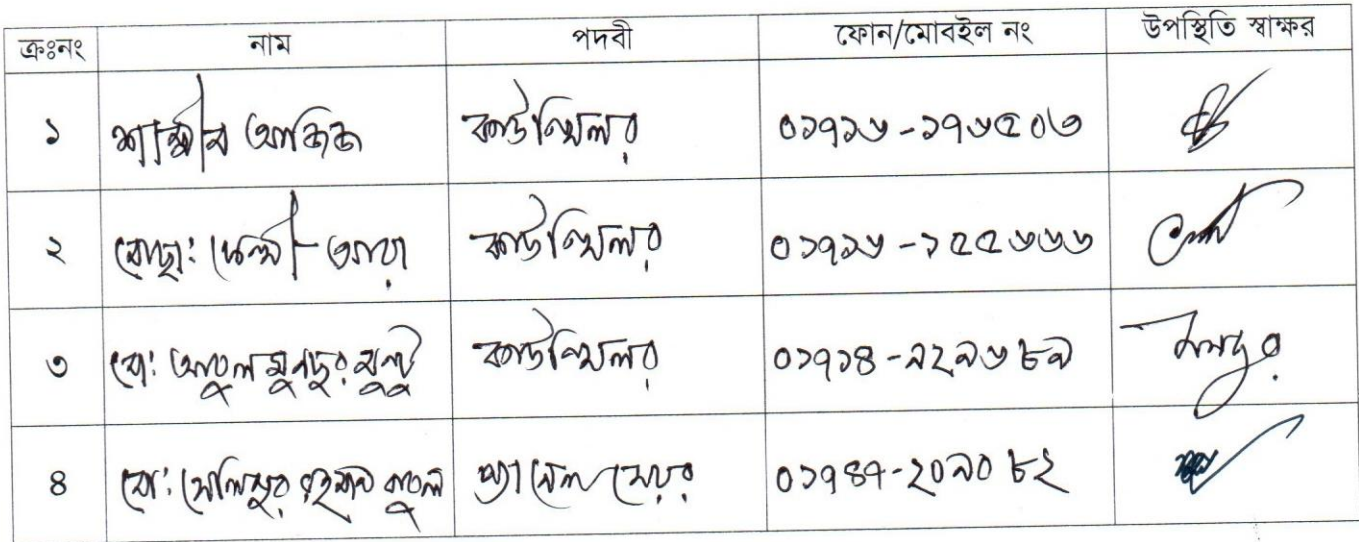 ক্রঃনং নাম পদবী ফোন/মোবইল নং উপস্থিতি স্বাক্ষর
১ শাহীন আজিজ কাউন্সিলর ০১৭১৬-১৭৬৫০৩
২ মোছা: আরা কাউন্সিলর ০১৭১৬-১৫৫৬৬৬
৩ মো: আবুল মুনছুর মুন্টু কাউন্সিলর ০১৭১৪-৯২৯৬৮৯
৪ মো: সেলিমুর রহমান বাবুল প্যানেল মেয়র ০১৭৪৭-২০৯০৮২